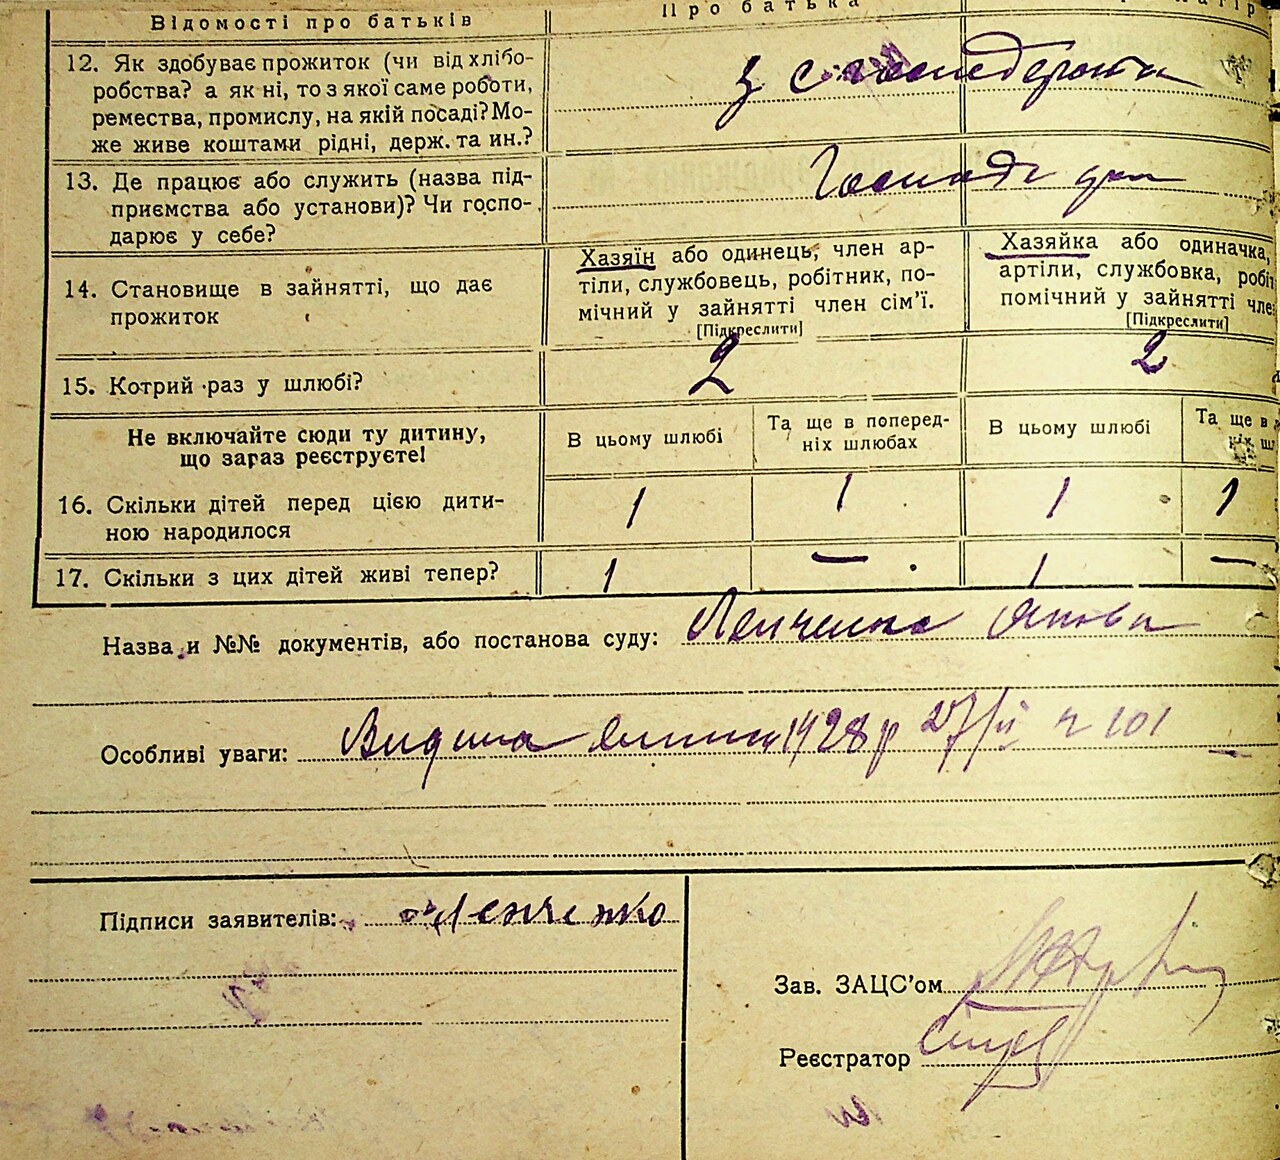 Відомості про батьків
Про батька
12. Як здобуває прожиток (чи від хлібо-
робства? а як ні, то з якої саме роботи,
ремества, промислу, на якій посаді? Мо-
же живе коштами рідні, держ. та ин.?
з с господарства
13. Де працює або служить (назва під-
приємства або установи)? Чи госпо-
дарює у себе?
14. Становище в зайнятті, що дає
прожиток
Хазяїн або одинець, член ар-
тіли, службовець, робітник, по-
мічний у зайнятті член сім'ї.
[Підкреслити]
Хазяйка або одиначка,
артіли, службовка, робіт
помічний у зайнятті чле
[Підкреслити]
15. Котрий раз у шлюбі?
2
2
Не включайте сюди ту дитину,
що зараз реєструєте!
В цьому шлюбі
Та ще в поперед-
ніх шлюбах
В цьому шлюбі
Та ще в
16. Скільки дітей перед цією дити-
ною народилося
1 1 1 1
17. Скільки з цих дітей живі тепер?
1 — 1 —
Назва и №№ документів, або постанова суду:
Особливі уваги: 1928 р 27/ 101
Підписи заявителів: Ленченко
Зав. ЗАЦС'ом
Реєстратор